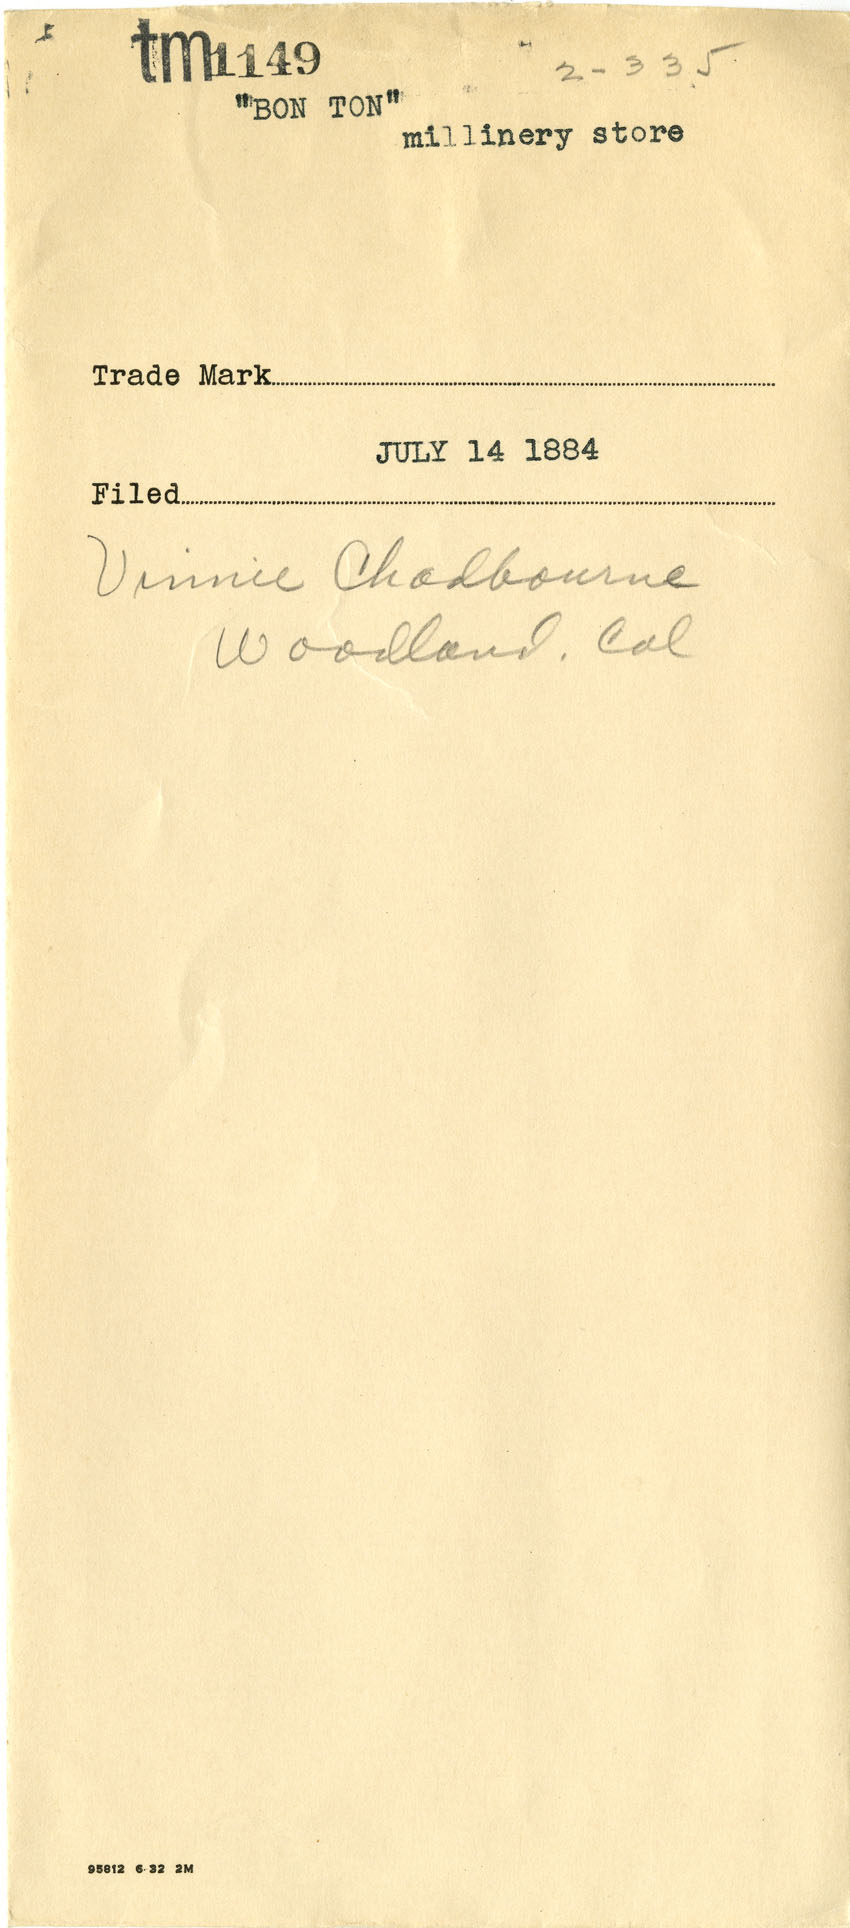 tm1149
2-335
"BON TON"
millinery store
Trade Mark
JULY 14 1884
Filed
Vinnie Chadbourne
Woodland. Cal
95812 6-32 2M